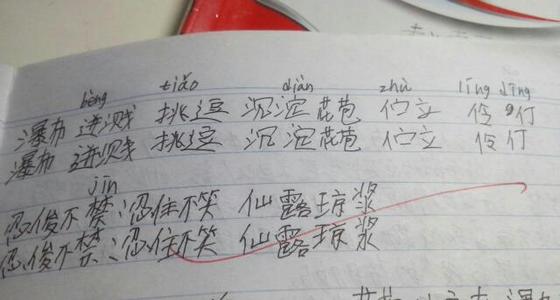 bèng tiǎo diàn zhù līng dīng
瀑布 迸溅 挑逗 沉淀 花苞 伫立 伶仃
瀑布 迸溅 挑逗 沉淀 花苞 伫立 伶仃
jīn
忍俊不禁:忍住不笑 仙露琼浆
忍俊不禁:忍住不笑 仙露琼浆